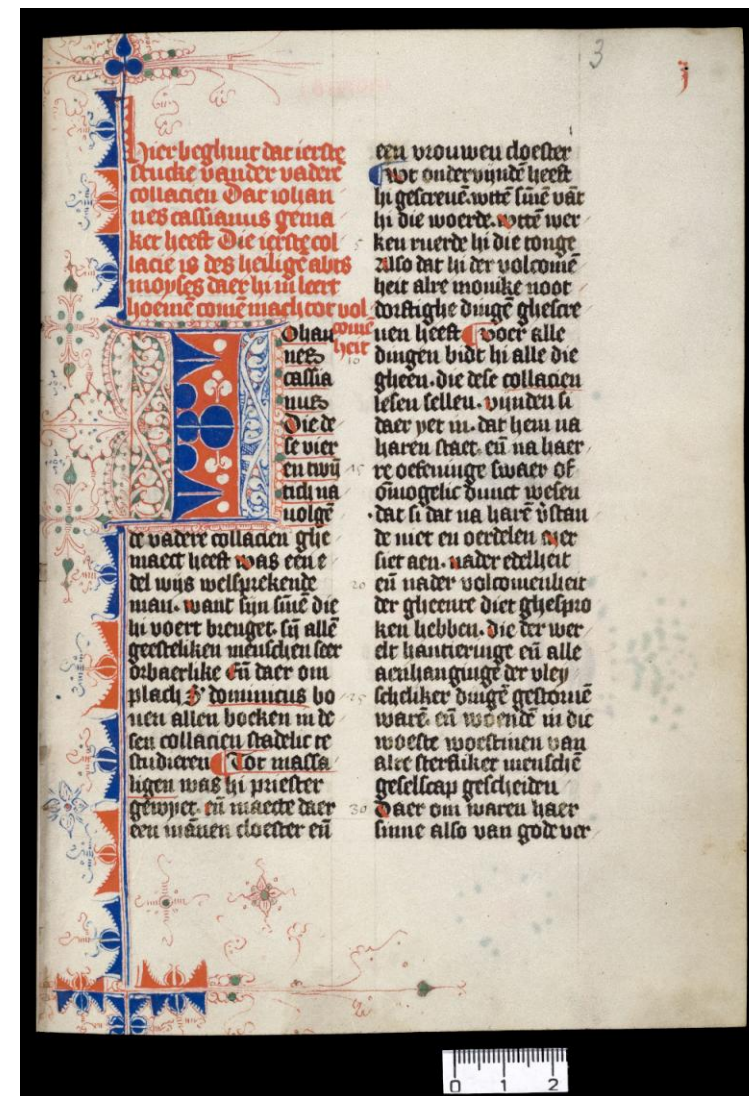 3
j
Hier beghint dat ierste
stucke vander vadere
collacien Dat iohan
nes cassianus gema
ket heeft Die ierste col
lacie is des heilige͂ abts
moyses daer hi in leert
hoeme͂ come͂ mach tot vol
come͂
heit
Ohan
nes
cassia
nus
Die de
se vier
en twi͂
tich na
uolge͂
de vadere collacien ghe
maect heeft was een e
del wijs welsprekende
man. want sijn si͂ne die
hi voert brenget. sij͂ alle͂
geesteliken menschen seer
orbaerlike En͂ daer om
plach S' dominicus bo
uen allen boeken in de
sen collacien stadelic te
studieren Tot massa
ligen was hi priester
gewyet. en͂ maecte daer
een ma͂nen cloester en͂
een vrouwen cloester
Wt onder vijnde͂ heeft
hi gescreue͂. witte͂ si͂ne va͂t
hi die woerde. witte͂ wer
ken ruerde hi die tonge
Also dat hi der volcome͂
heit alre monike noot
dorftighe dinge͂ ghescre
uen heeft Voer alle
dingen bidt hi alle die
gheen. die dese collacien
lesen sellen. vijnden si
daer yet in. dat hem na
haren staet. en͂ na haer
re oefeninge swaer of
o͂mogelic dunct wesen
dat si dat na hare͂ v͛stan
de niet en oerdelen mer
siet aen. nader edelheit
en͂ nader volcomenheit
der gheenre diet ghespro
ken hebben. die der wer
elt hantieringe en͂ alle
aenhanginge der vley
scheliker dinge͂ gestorue͂
ware͂. en͂ woende͂ in die
woeste woestinen van
alre sterfliker mensche͂
geselscap gescheiden
Daer om waren haer
sinne also van gode ver
5
10
15
20
25
30
0 1 2